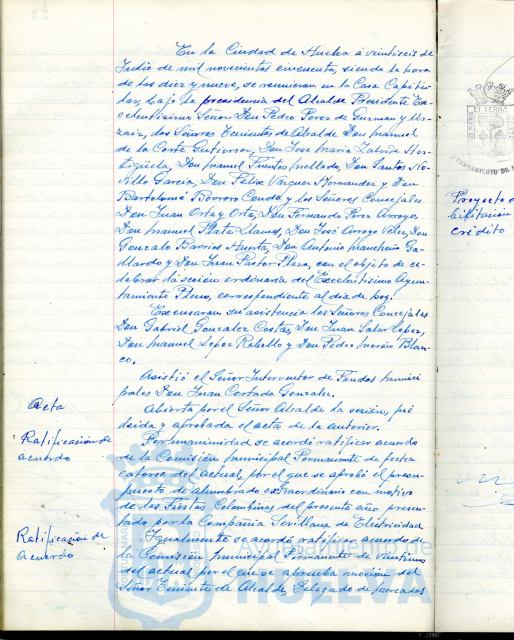 En la Ciudad de Huelva a veintiseis de
Julio de mil novecientos cincuenta, siendo la hora
de las diez y nueve, se reunieron en la Casa Capitu-
lar, bajo la presidencia del Alcalde Presidente Ex-
celentisimo Señor Don Pedro Perez de Guzman y Ur-
zaiz, los Señores Tenientes de Alcalde Don Manuel
de la Corte Gutierrez, Don Jose Maria Zalvide Hor-
tigüela, Don Manuel Fuentes Mellado, Don Santos No-
villo Garcia, Don Felix Vazquez Hernandez y Don
Bartolomé Borrero Conde y los Señores Concejales
Don Juan Orta y Orta, Don Fernando Perez Arroyo,
Don Manuel Plata Llamas, Don José Arroyo Velez, Don
Gonzalo Barrios Huerta, Don Antonio Mancheño Ga-
llardo y Don Juan Pastor Plaza, con el objeto de ce-
lebrar la sesión ordinaria del Excelentisimo Ayun-
tamiento Pleno, correspondiente al dia de hoy.
Excusaron su asistencia los Señores Concejales
Don Gabriel Gonzalez Costas, Don Juan Salar Lopez,
Don Manuel Lopez Rebollo y Don Pedro Morón Blan-
co.
Asistió el Señor Interventor de Fondos Munici-
pales Don Juan Cortada Gonzalez.
Acta
Abierta por el Señor Alcalde la sesión, fué
leida y aprobada el acta de la anterior.
Ratificación de
acuerdo
Por unanimidad se acordó ratificar acuerdo
de la Comisión Municipal Permanente de fecha
catorce del actual, por el que se aprobó el presu-
puesto de alumbrado extraordinario con motivo
de las Fiestas Colombinas del presente año presen-
tado por la Compañia Sevillana de Electricidad.
Ratificación de
acuerdo
Igualmente se acordó ratificar acuerdo de
la Comisión Municipal Permanente de veintiuno
del actual por el que se aprueba moción del
Señor Teniente de Alcalde Delegado de Mercados
HUELVA
Proyecto de
crédito